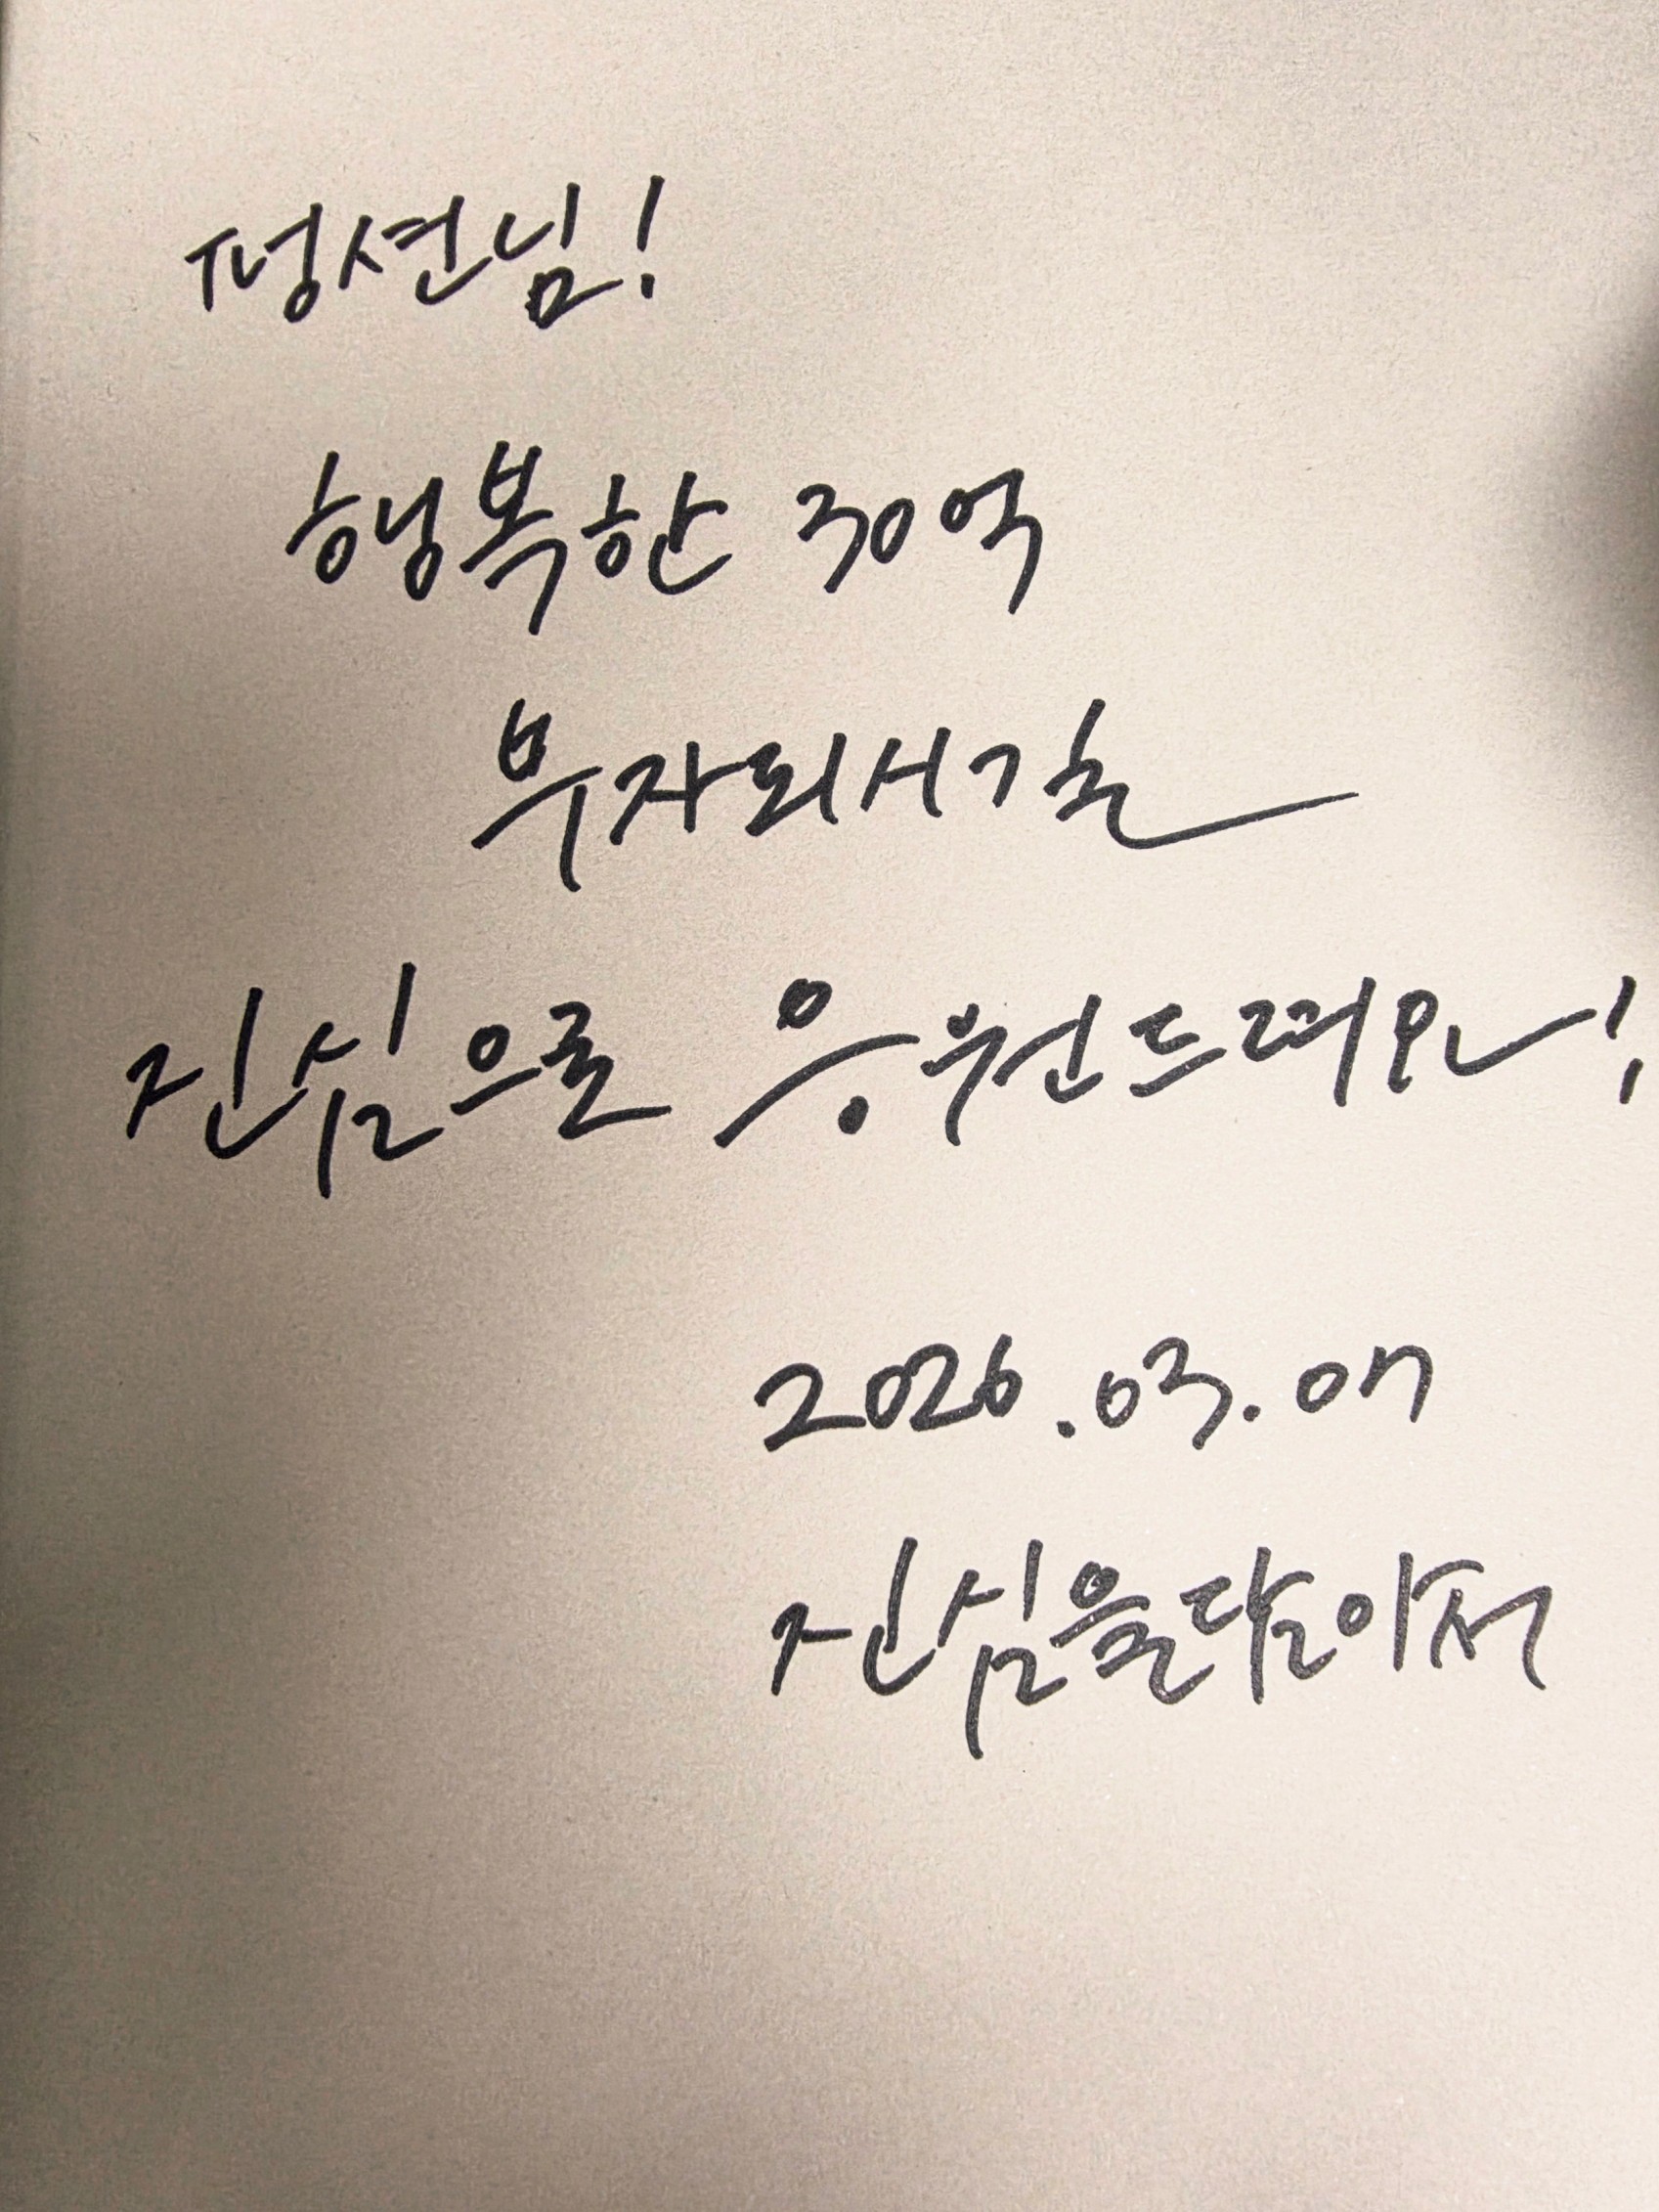 펑션님!
행복한 30억
부자되서길
진심으로 응원드려요!
2026.03.07
진심을담아서